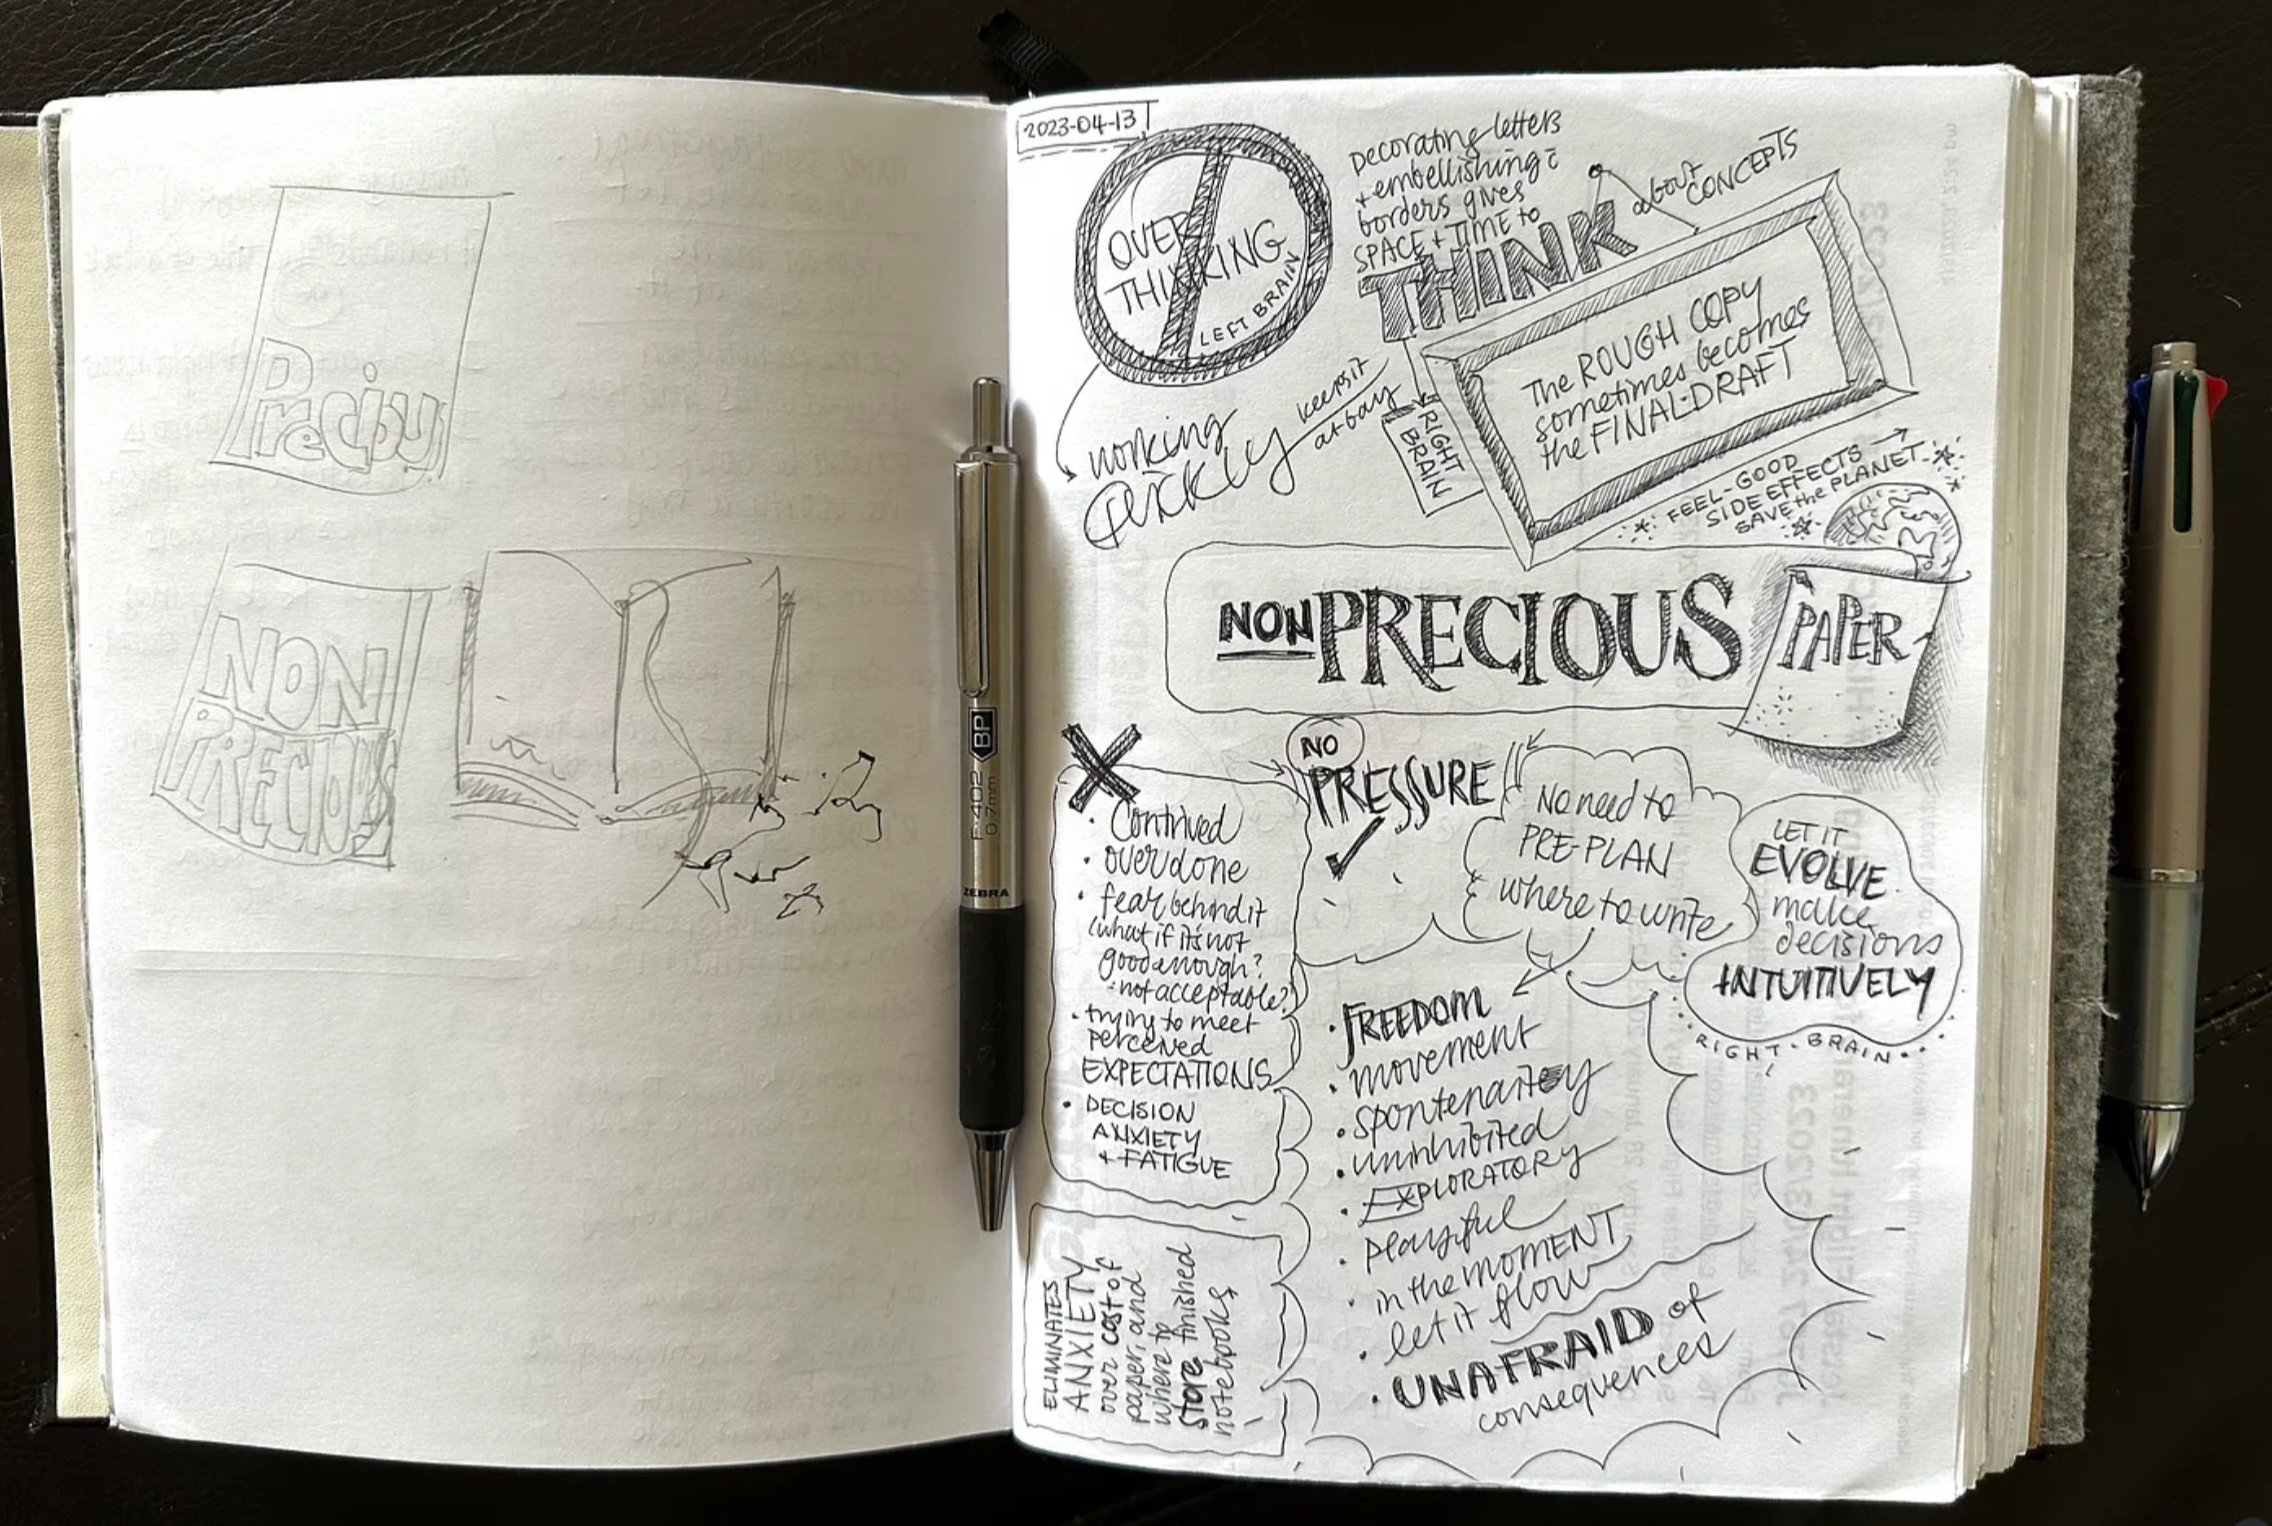 Precious
NON
PRECIOUS
BP
F-402
0.7mm
ZEBRA
2023-04-13
OVER
THINKING
LEFT BRAIN
Decorating letters
+ embellishing c̄
borders gives
SPACE + TIME to
THINK
about
CONCEPTS
working
QUICKLY
keeps it
at bay
RIGHT
BRAIN
The ROUGH COPY
sometimes becomes
the FINAL-DRAFT
FEEL-GOOD
SIDE EFFECTS →
SAVE the PLANET
NON PRECIOUS PAPER
X
• Contrived
• overdone
• fear behind it
(what if it's not
good enough?
• not acceptable?)
• trying to meet
perceived
EXPECTATIONS
• DECISION
ANXIETY
+ FATIGUE
NO
PRESSURE
✓
No need to
PRE-PLAN
where to write
LET IT
EVOLVE
make
decisions
INTUITIVELY
RIGHT-BRAIN
• FREEDOM
• movement
• spontenaitey
• uninhibited
• EXPLORATORY
• playful
• in the MOMENT
• let it flow
• UNAFRAID of
consequences
ELIMINATES
ANXIETY
over cost of
paper, and
where to
store finished
notebooks